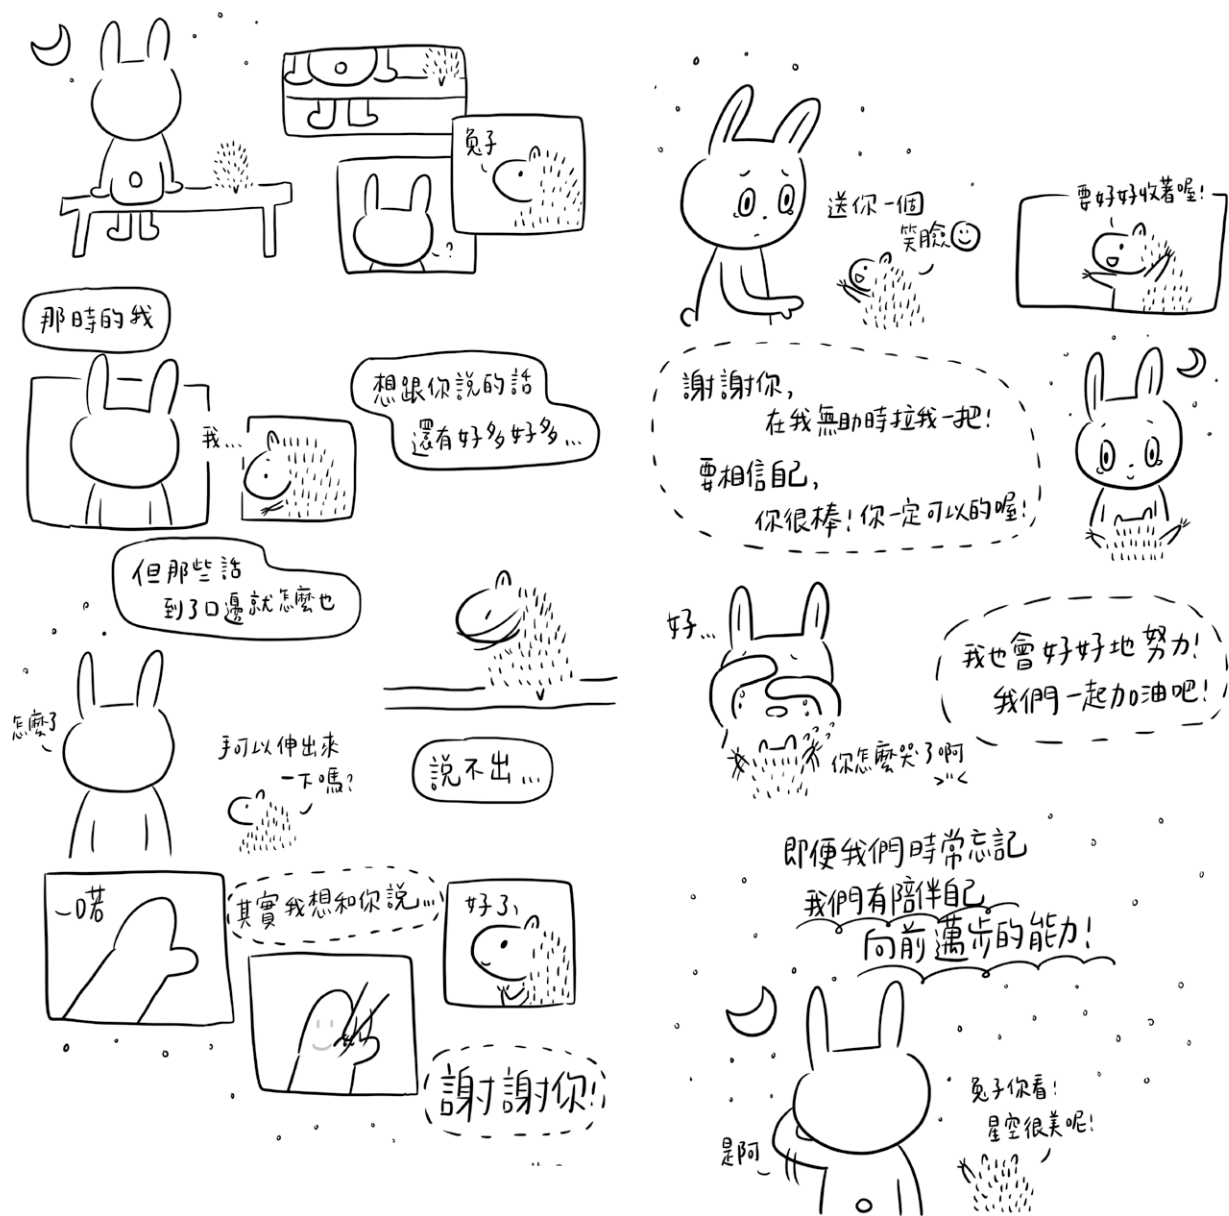 兔子
?
那時的我
我...
想跟你說的話
還有好多好多...
但那些話
到了口邊就怎麼也
怎麼了
手可以伸出來
一下嗎?
說不出...
喏
其實我想和你說...
好了、
謝謝你!
送你一個
笑臉
要好好收著喔!
謝謝你,
在我無助時拉我一把!
要相信自己,
你很棒!你一定可以的喔!
好...
我也會好好地努力!
我們一起加油吧!
你怎麼哭了啊
>"<
即便我們時常忘記
我們有陪伴自己
向前邁步的能力!
兔子你看!
星空很美呢!
是阿